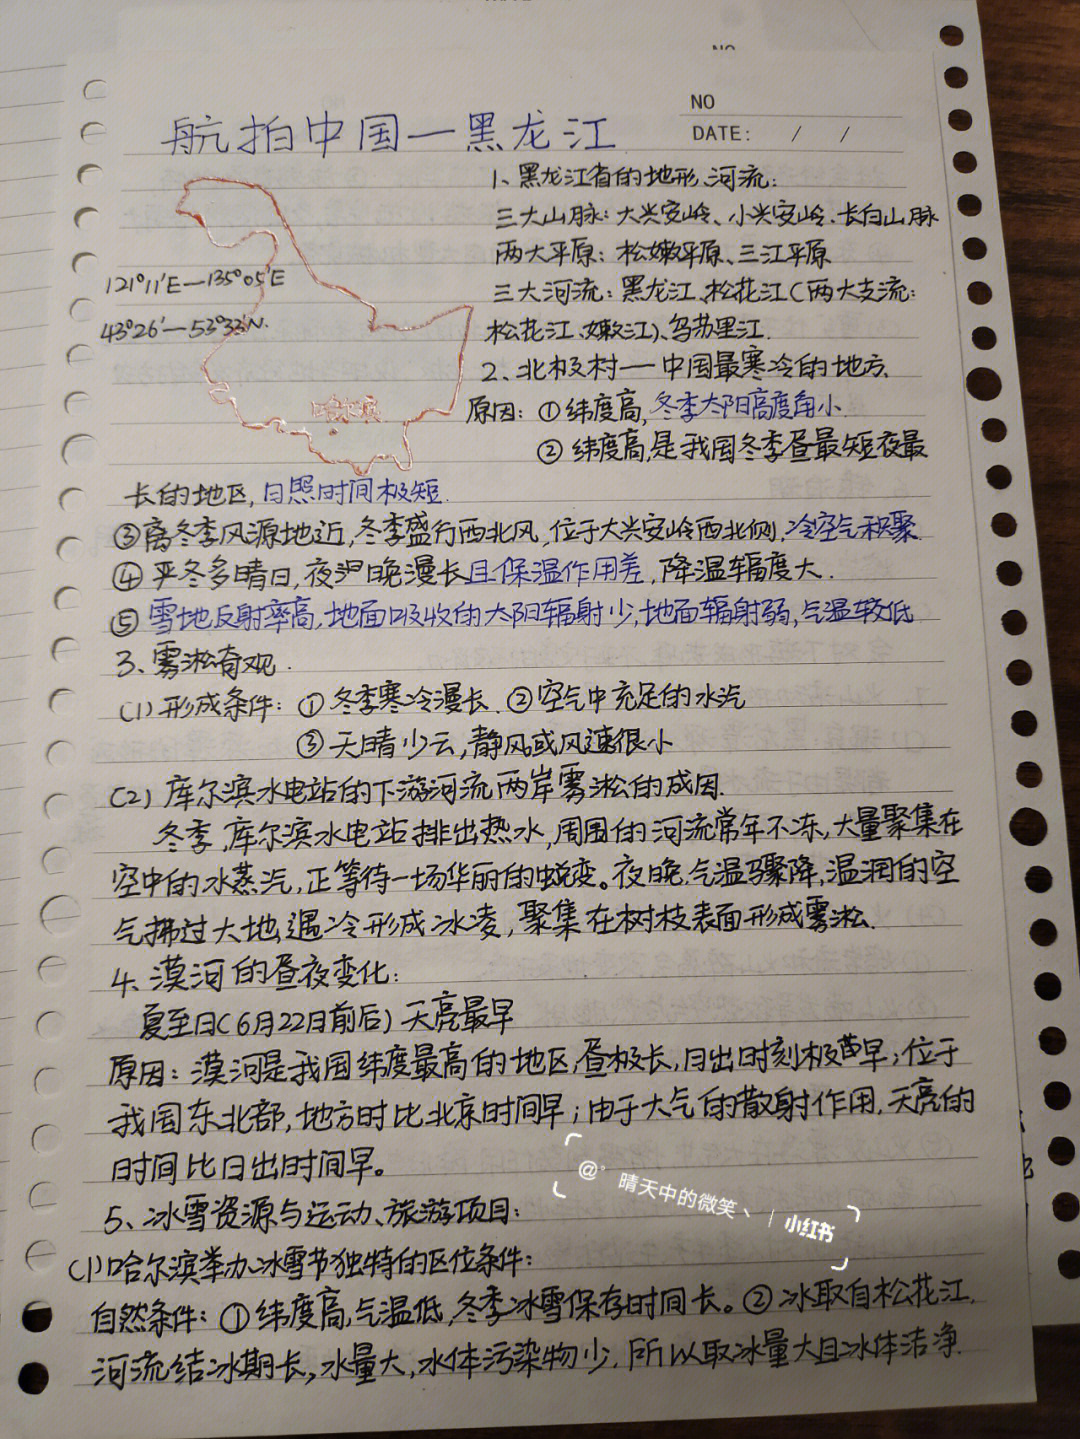 NO
NO
DATE: / /
航拍中国—黑龙江
1、黑龙江省的地形、河流:
三大山脉: 大兴安岭、小兴安岭、长白山脉
两大平原: 松嫩平原、三江平原
121°11′E—135°05′E
三大河流: 黑龙江、松花江(两大支流:
43°26′—53°33′N.
松花江、嫩江)、乌苏里江.
2、北极村——中国最寒冷的地方.
哈尔滨
原因: ①纬度高,冬季太阳高度角小.
②纬度高,是我国冬季昼最短夜最
长的地区,日照时间极短.
③离冬季风源地近,冬季盛行西北风,位于大兴安岭西北侧,冷空气积聚.
④严冬多晴日,夜晚漫长且保温作用差,降温幅度大.
⑤雪地反射率高,地面吸收的太阳辐射少;地面辐射弱,气温较低
3、雾凇奇观.
(1)形成条件: ①冬季寒冷漫长. ②空气中充足的水汽
③天晴少云,静风或风速很小
(2) 库尔滨水电站的下游河流两岸雾凇的成因.
冬季,库尔滨水电站排出热水,周围的河流常年不冻,大量聚集在
空中的水蒸汽,正等待一场华丽的蜕变。夜晚,气温骤降,温润的空
气拂过大地,遇冷形成冰凌,聚集在树枝表面形成雾凇.
4、漠河的昼夜变化:
夏至日(6月22日前后)天亮最早
原因: 漠河是我国纬度最高的地区,昼极长,日出时刻极早;位于
我国东北部,地方时比北京时间早;由于大气的散射作用,天亮的
时间比日出时间早。
5、冰雪资源与运动、旅游项目:
(1)哈尔滨举办冰雪节独特的区位条件:
自然条件: ①纬度高,气温低,冬季冰雪保存时间长。②冰取自松花江,
河流结冰期长,水量大,水体污染物少,所以取冰量大且冰体洁净.
@° 晴天中的微笑、 | 小红书